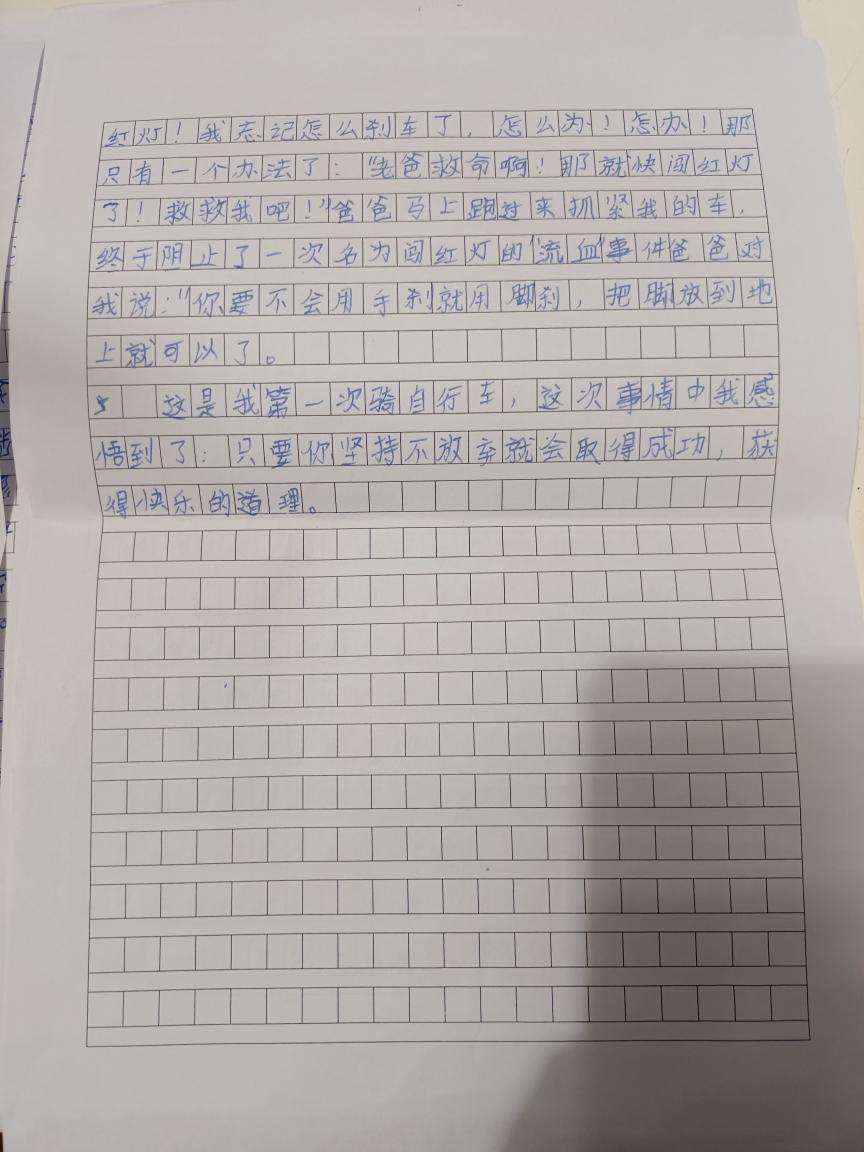 红灯！我忘记怎么刹车了，怎么为！怎办！那
只有一个办法了：“老爸救命啊！那就快闯红灯
了！救救我吧！”爸爸马上跑过来抓紧我的车，
终于阻止了一次名为闯红灯的“流血”事件爸爸对
我说：“你要不会用手刹就用脚刹，把脚放到地
上就可以了。
这是我第一次骑自行车，这次事情中我感
悟到了：只要你坚持不放弃就会取得成功，获
得快乐的道理。